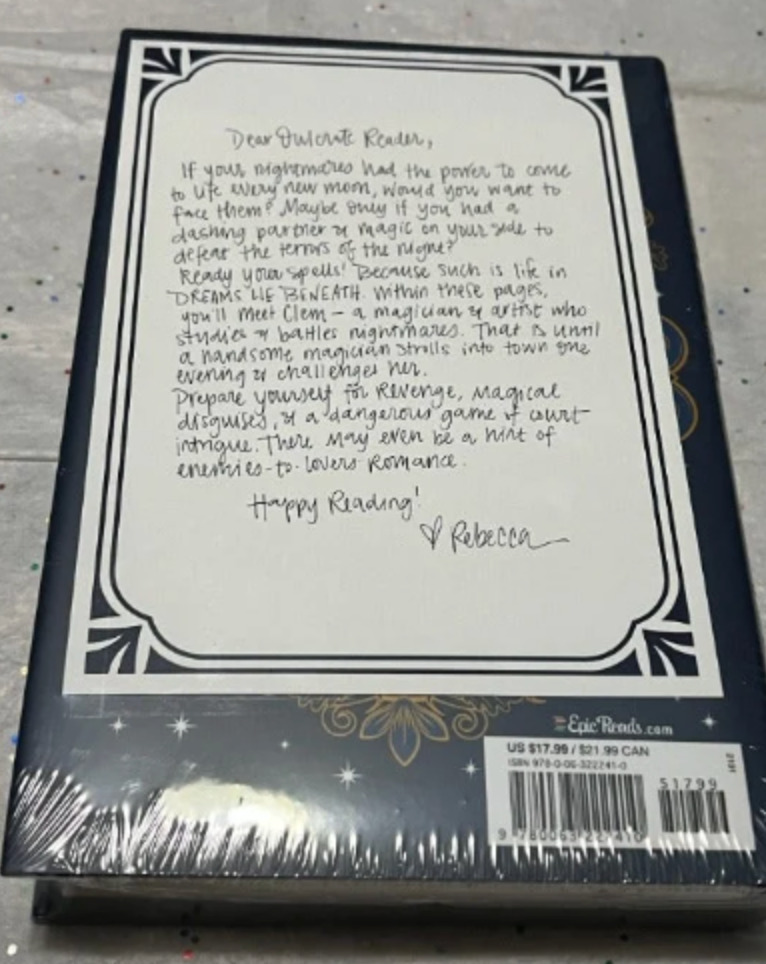 Dear Owlcrate Reader,
If your nightmares had the power to come
to life every new moon, would you want to
face them? Maybe only if you had a
dashing partner & magic on your side to
defeat the terrors of the night?
Ready your spells! Because such is life in
DREAMS LIE BENEATH. Within these pages,
you'll meet Clem - a magician & artist who
studies & battles nightmares. That is until
a handsome magician strolls into town one
evening & challenges her.
Prepare yourself for Revenge, magical
disguises, & a dangerous game of court
intrigue. There may even be a hint of
enemies-to-lovers Romance.
Happy Reading!
♡ Rebecca
EpicReads.com
US $17.99 / $21.99 CAN
ISBN 978-0-06-322241-0
2101
51799
9 780063 222410